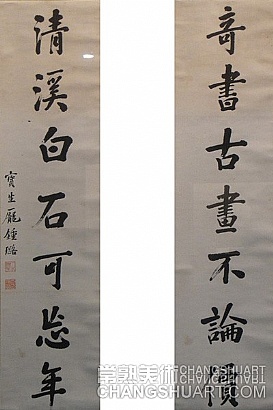 奇書古畫不論價
清溪白石可忘年
寶生龐鍾璐
常熟美術 CHANGSHUART
CHANGSHUART.COM